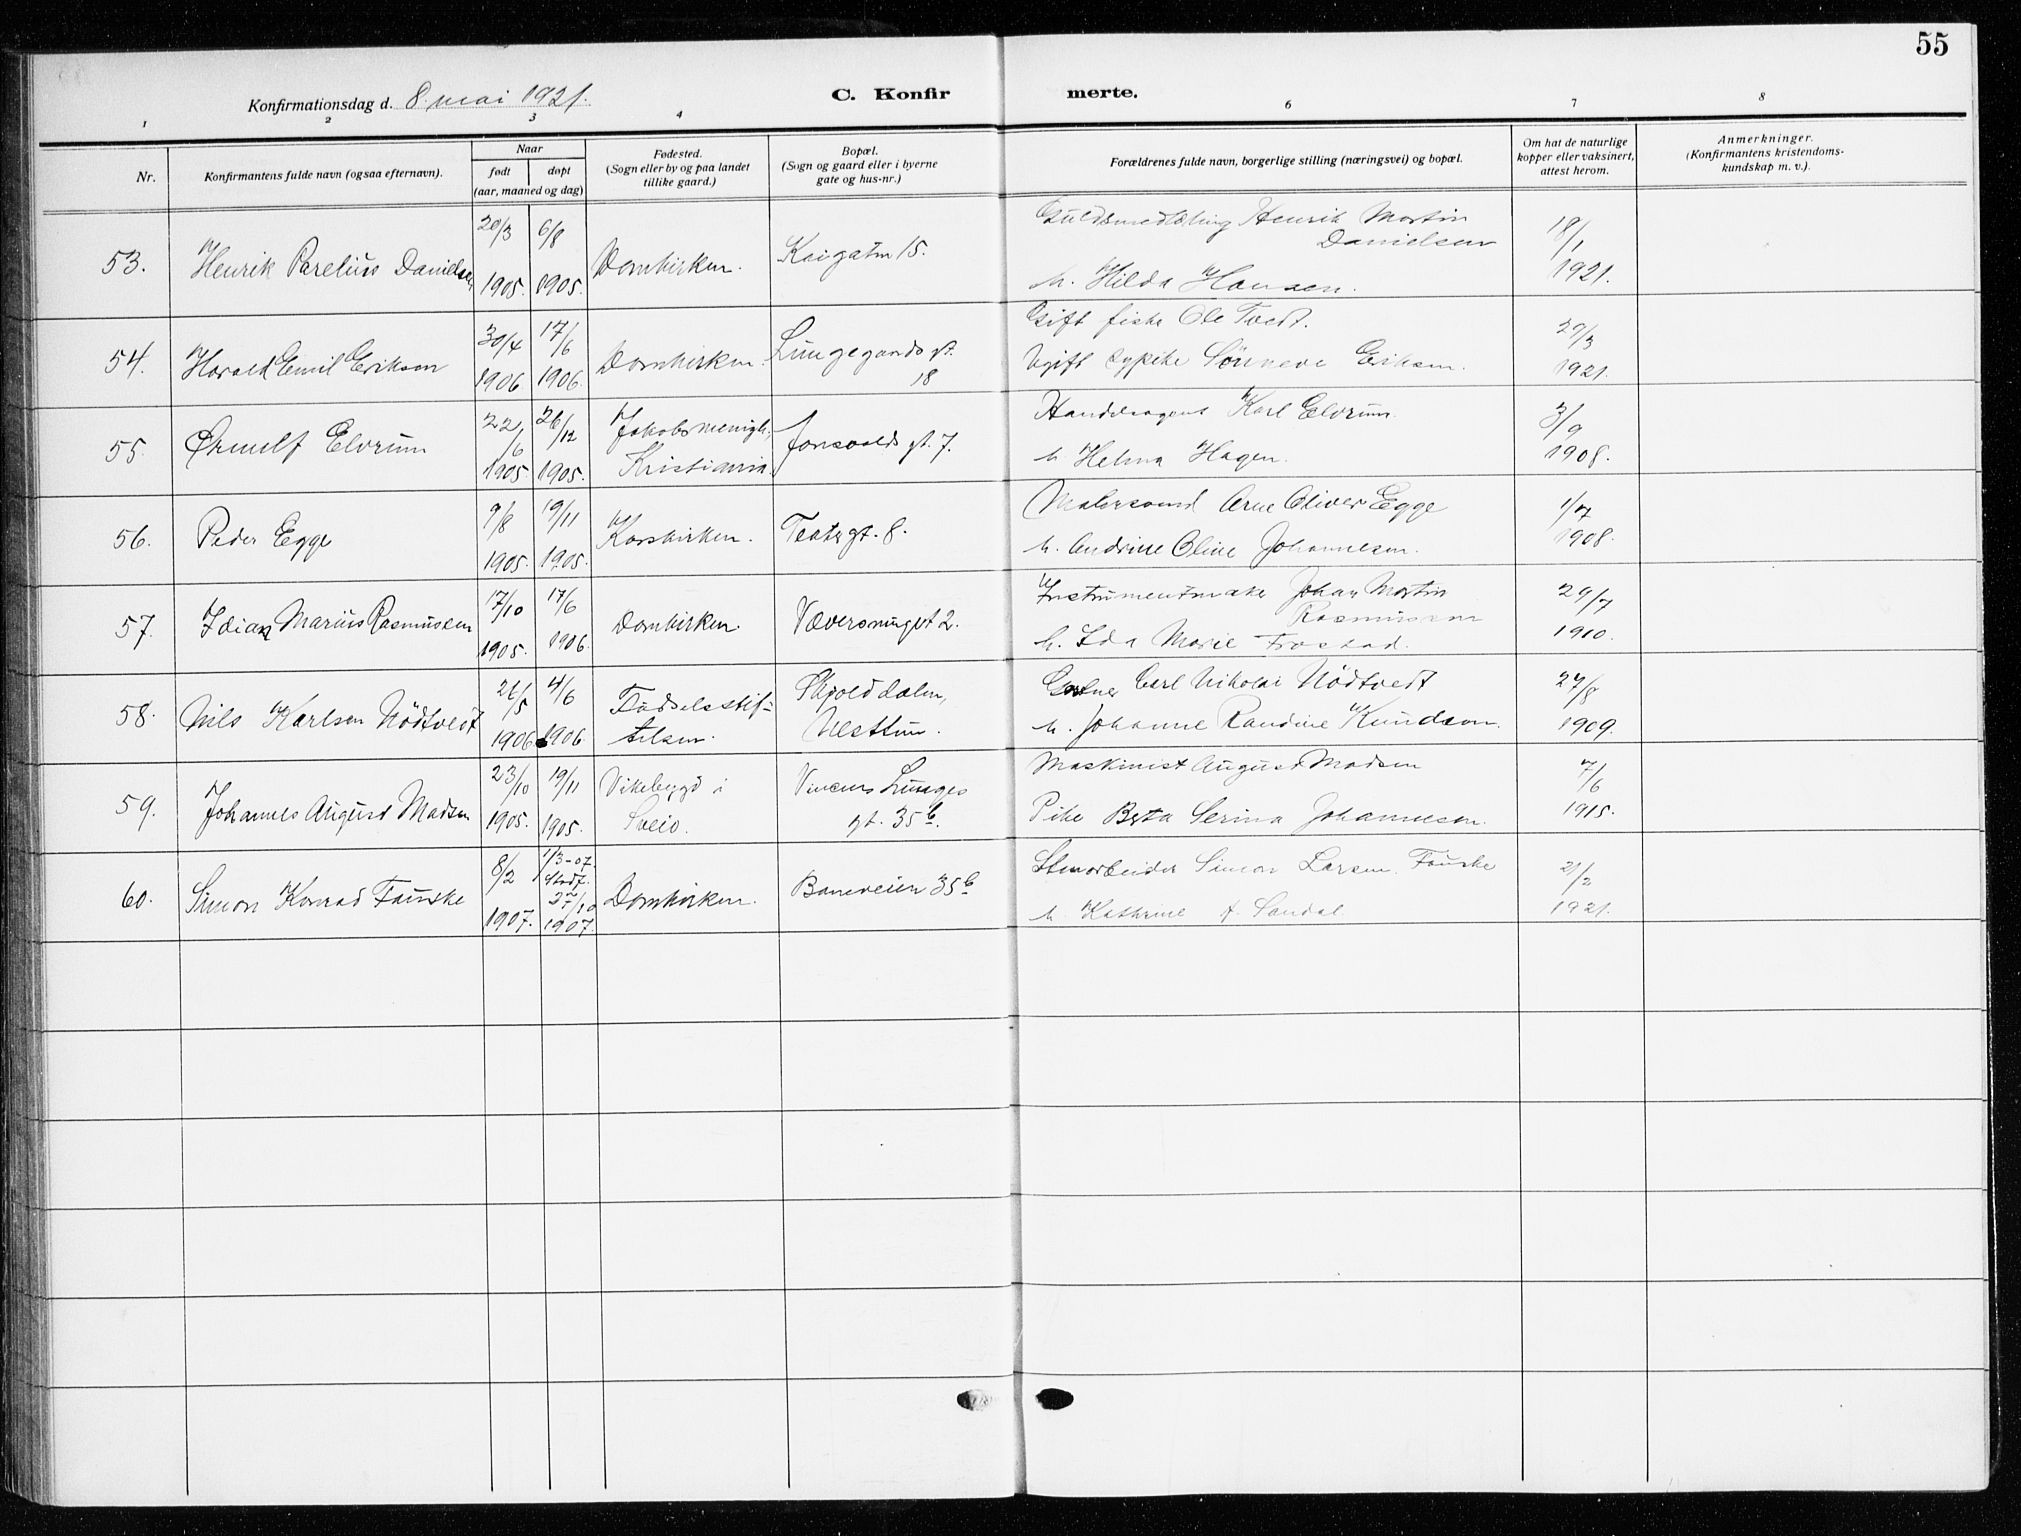 55
Konfirmationsdag d. 8. mai 1921.
C. Konfir merte.
1 2 3 4 6 7 8
Nr.
Konfirmantens fulde navn (ogsaa efternavn).
Naar
født døpt
(aar, maaned og dag)
Fødested.
(Sogn eller by og paa landet
tillike gaard.)
Bopæl.
(Sogn og gaard eller i byerne
gate og hus-nr.)
Forældrenes fulde navn, borgerlige stilling (næringsvei) og bopæl.
Om hat de naturlige
kopper eller vaksinert,
attest herom.
Anmerkninger.
(Konfirmantens kristendoms-
kundskap m. v.).
53. Henrik Parelius Danielsen
20/3 1905. 6/8 1905.
Domkirken.
Kaigatn 15.
Henrik Martin
Danielsen
h. Hilda Hansen.
18/1 1921.
54. Harald Emil Erikson
30/4 1906 17/6 1906.
Domkirken.
Lungegaards gt.
18
Gift fisker Ole Tvedt.
Ugift sypike Eriksen.
29/3 1921.
55. Ørnulf Elvrum
22/6 1905. 26/12 1905.
Jakobs menigh.,
Kristiania.
Jonsvolds gt. 7.
Handelsagent Karl Elvrum.
h. Helma Hagen.
3/9 1908.
56. Peder Egge
9/8 1905. 19/11 1905.
Korskirken.
Teatergt. 8.
Malersvend Arne Oliver Egge
h. Andrine Oline Johannesen.
1/7 1908.
57. Marius Rasmussen
17/10 1905. 17/6 1906.
Domkirken.
2.
Instrumentmaker Johan Martin
Rasmussen
h. Ida Marie Frostad.
29/7 1910.
58. Nils Karlsen Nödtvedt
26/5 1906 4/6 1906.
Fødselsstif-
telsen.
Skjolddalen,
Nesttun.
Gartner Carl Nikolai Nödtvedt
h. Johanne Randine Knudsen.
27/8 1909.
59. Johannes August Madsen
23/10 1905. 19/11 1905.
Vikebygd i
Sveio.
Lunges
gt. 35 b.
Maskinist August Madsen
Pike Berta Serina Johannesen.
7/6 1915.
60. Simon Konrad Fauske
8/2 1907. 1/3-07. Stadf. 27/10 1907.
Domkirken.
Baneveien 35 b
Stenarbeider Simon Larsen Fauske
h. Kathrine A. Sandal.
21/2 1921.